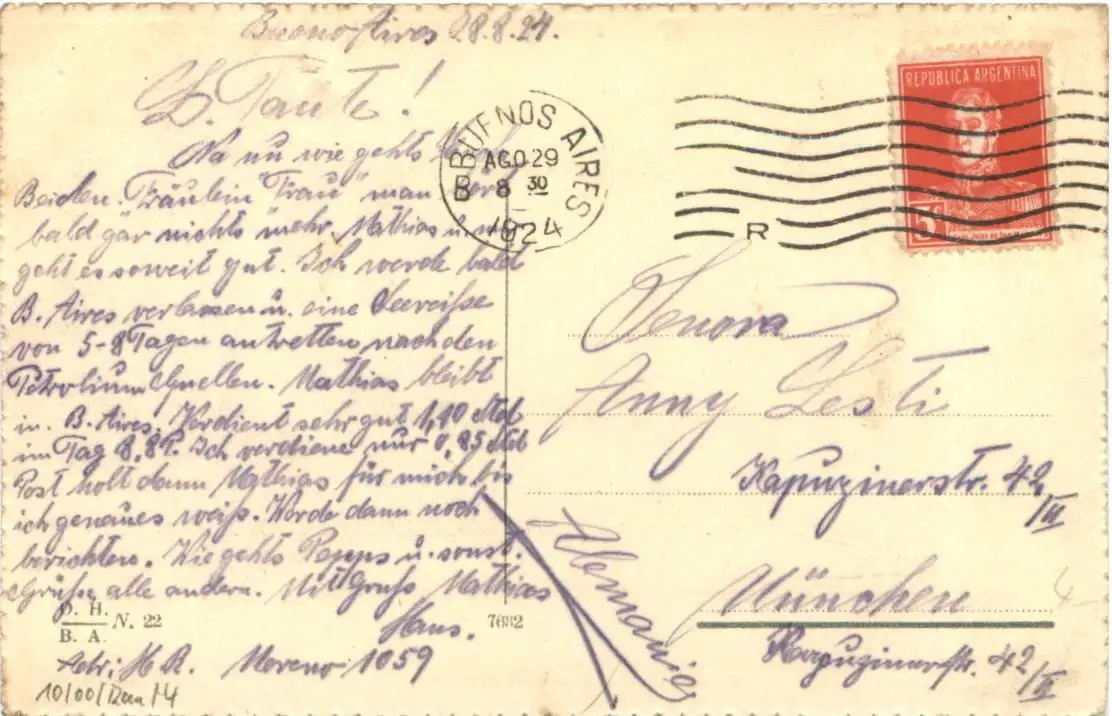 Buenos Aires 28.8.24.
L. Tante!
Na nu wie gehts
Beiden. Fräulein "Frau" man
bald gar nichts mehr. Mathias u.
geht es soweit gut. Ich werde bald
B. Aires verlassen u. eine Seereise
von 5-8 Tagen antretten, nach den
Petroliumquellen. Mathias bleibt
in B. Aires. Verdient sehr gut 1,10 Std
im Tag 8,8 P. Ich verdiene nur 0,85 Std
Post holt dann Mathias für mich bis
ich genaues weiß. Werde dann noch
berichten. Wie gehts Pepps u. sonst.
Grüße alle andern. Mit Gruß Mathias
Hans.
Adr: H R. Moreno 1059
10/00/Dan/4
D. H.
B. A.
N. 22
7682
BUENOS AIRES
AGO 29
B 8 30
1924
R
REPUBLICA ARGENTINA
5
Senora
Anny Lesti
Kapuzinerstr. 42/II
München
Kapuzinerstr. 42/II
Alemania